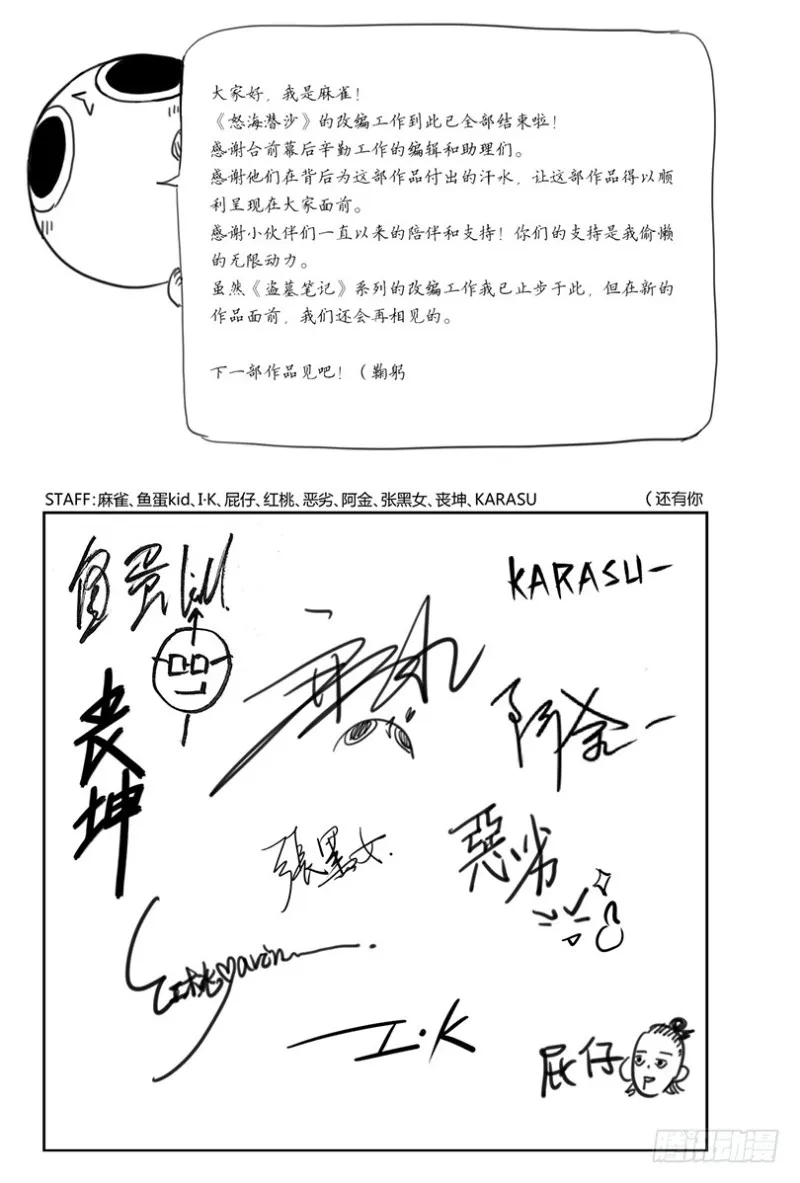 大家好，我是麻雀！
《怒海潜沙》的改编工作到此已全部结束啦！
感谢台前幕后辛勤工作的编辑和助理们。
感谢他们在背后为这部作品付出的汗水，让这部作品得以顺
利呈现在大家面前。
感谢小伙伴们一直以来的陪伴和支持！你们的支持是我偷懒
的无限动力。
虽然《盗墓笔记》系列的改编工作我已止步于此，但在新的
作品面前，我们还会再相见的。
下一部作品见吧！（鞠躬
STAFF：麻雀、鱼蛋kid、I·K、屁仔、红桃、恶劣、阿金、张黑女、丧坤、KARASU （还有你
鱼蛋kid
KARASU
丧坤
阿金
張黑女
惡劣
红桃
I·K
屁仔
腾讯动漫